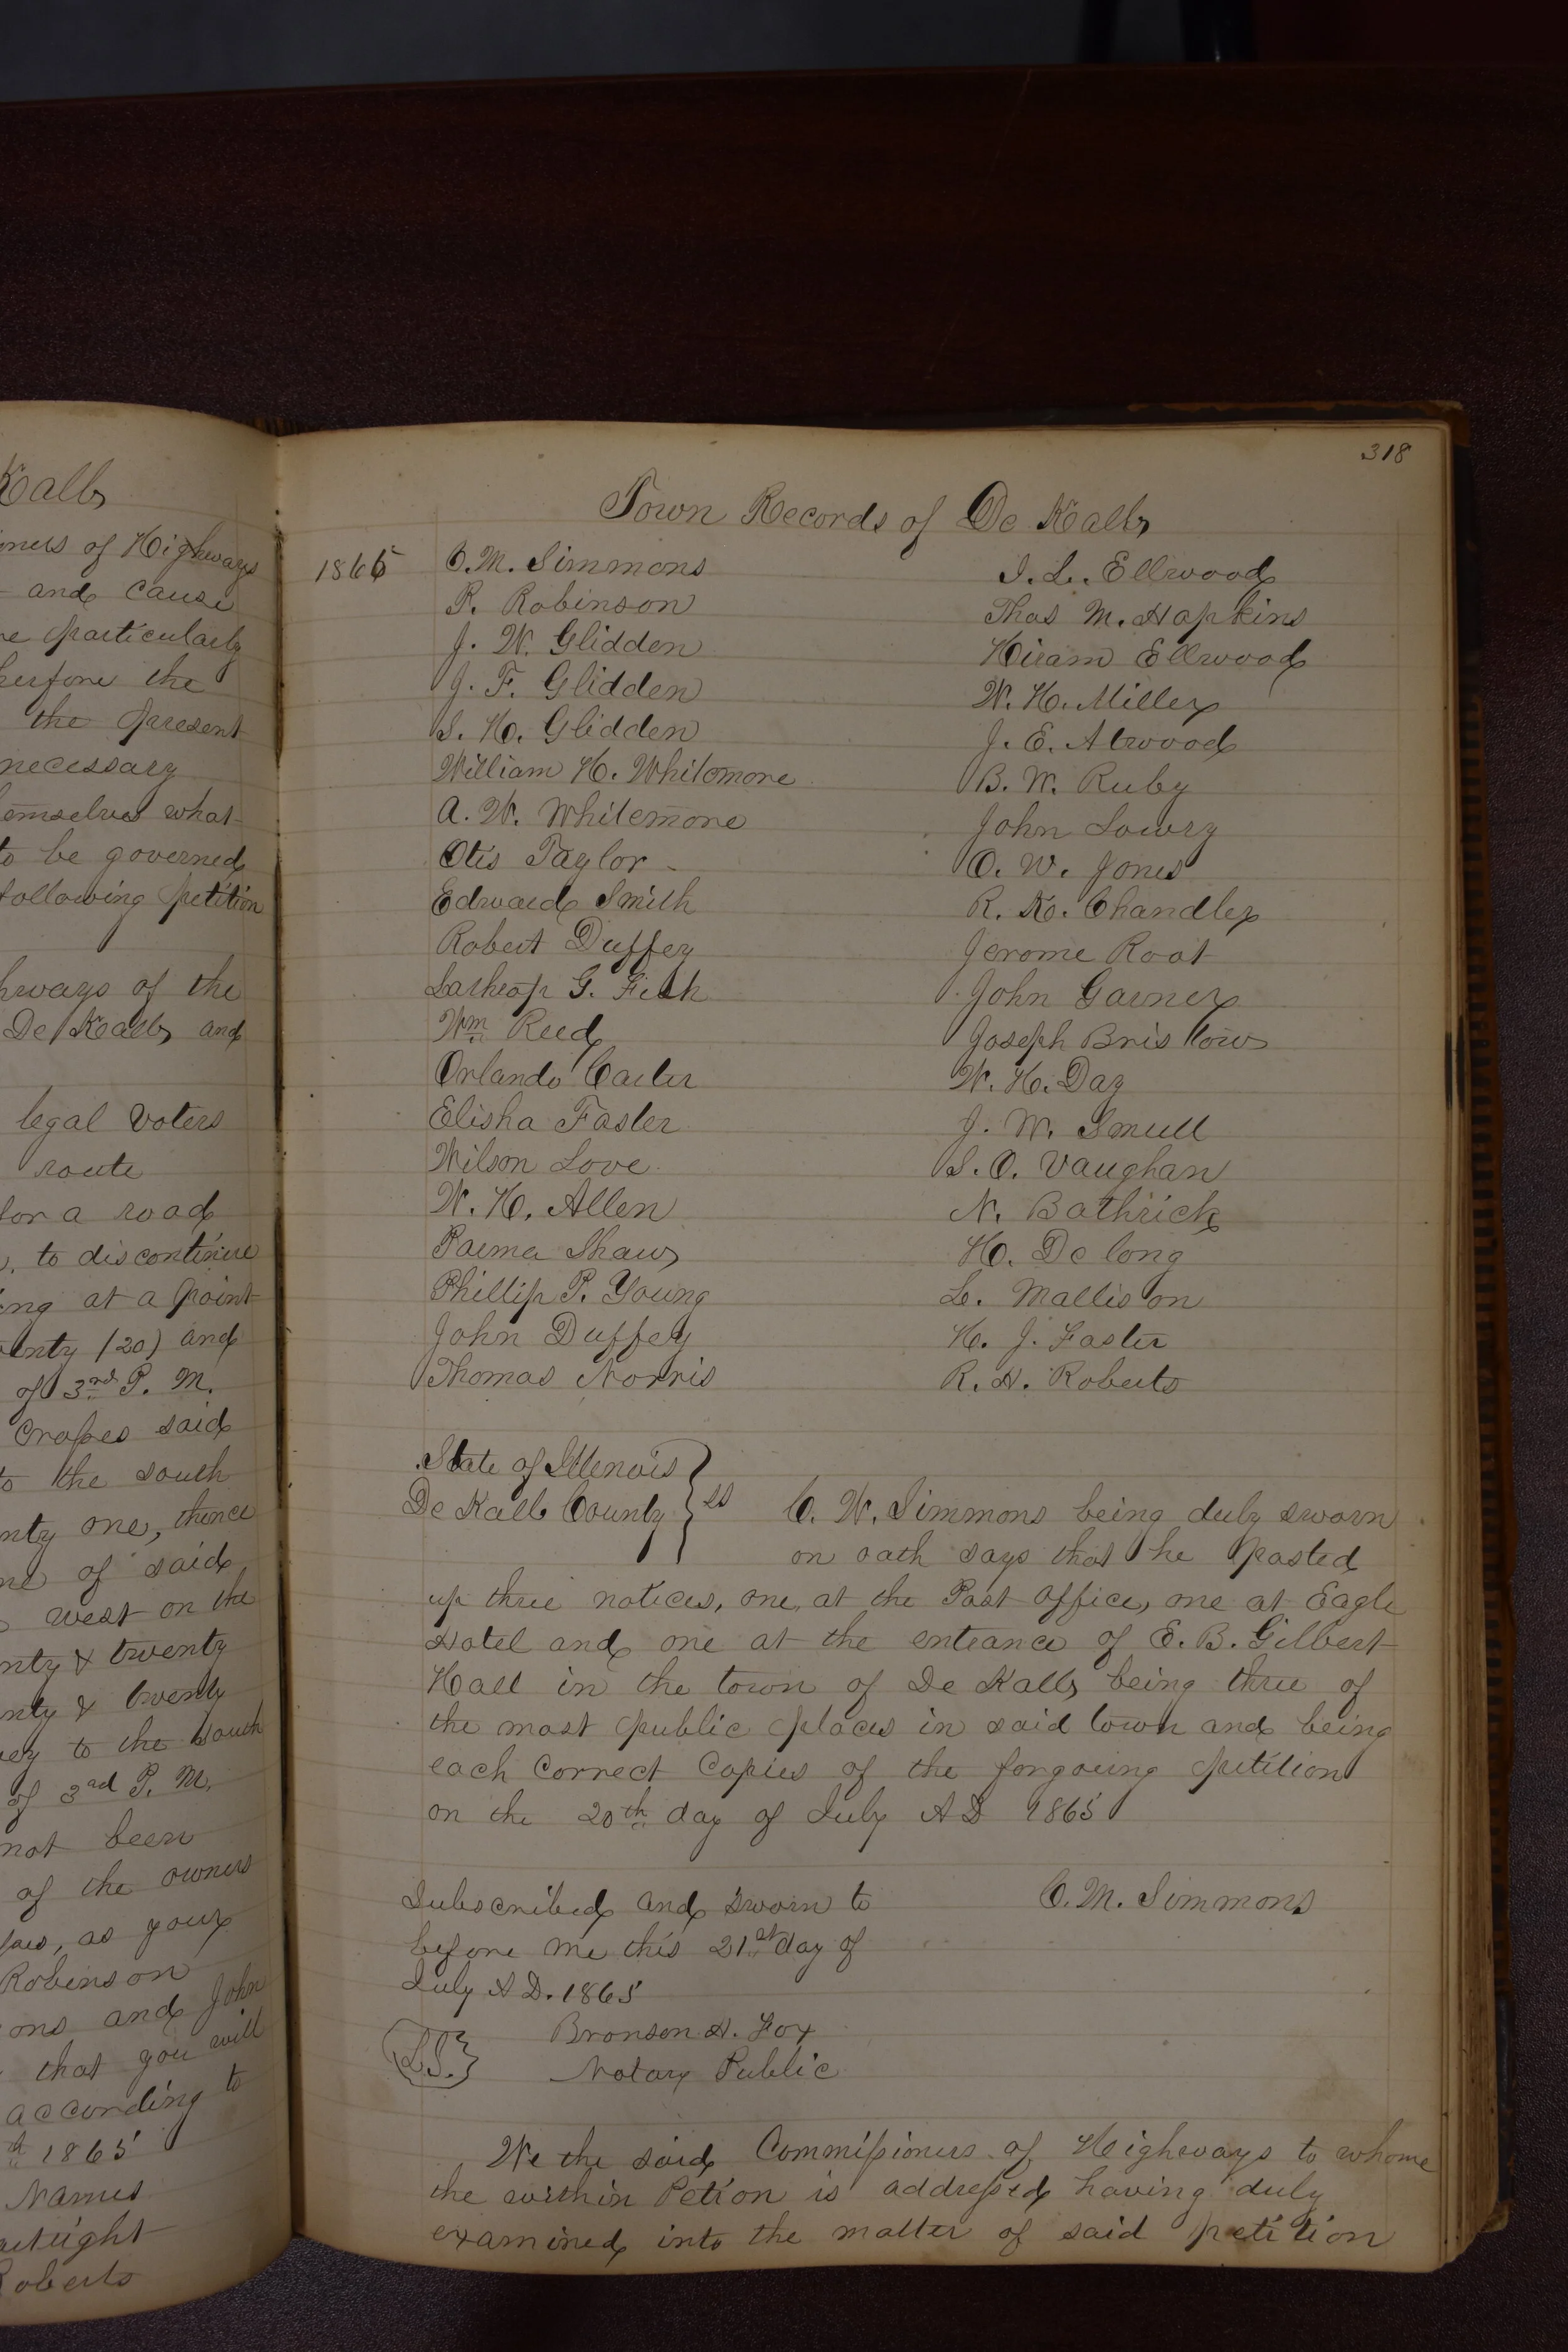 Kalb
oners of Highways
and cause
re particularly
herfore the
the present
necessary
emselves what
to be governed
following petition
hways of the
De Kalb and
legal voters
route
for a road
to discontinue
ing at a point
enty (20) and
of 3rd P. M.
Crosses said
to the south
nty one, thence
ne of said
west on the
nty & twenty
nty & twenty
ey to the south
of 3rd P. M.
not been
of the owners
as your
Robinson
ons and John
that you will
according to
1865
Names
Roberts
318
Town Records of De Kalb
1865
C. M. Simmons
P. Robinson
J. W. Glidden
J. F. Glidden
S. H. Glidden
William H. Whitemore
A. W. Whitemore
Otis Taylor
Edward Smith
Robert Duffey
Lathrop G. Fitch
Wm Reed
Orlando Carter
Elisha Foster
Wilson Love
W. H. Allen
Parma Shaw
Phillip P. Young
John Duffey
Thomas Norris
I. L. Ellwood
Thos M. Hopkins
Hiram Ellwood
W. H. Miller
J. E. Atwood
B. W. Ruby
John Lowry
O. W. Jones
R. K. Chandler
Jerome Root
John Garner
Joseph Bristow
W. H. Day
J. W. Smull
S. O. Vaughan
N. Bathrick
H. De long
L. Mallison
H. J. Foster
R. H. Roberts
State of Illenois
De Kalb County } ss C. W. Simmons being duly sworn
on oath says that he posted
up three notices, one, at the Post office, one at Eagle
Hotel and one at the entrance of E. B. Gilbert
Hall in the town of De Kalb being three of
the most public places in said town and being
each correct Copies of the forgoeing petition
on the 20th day of July A D 1865
Subscribed and sworn to C. M. Simmons
before me this 21st day of
July A D. 1865
Bronson H. Fox
(L.S.) Notary Public
We the said Commissioners of Highways to whome
the within Petion is addressed having duly
examined into the matter of said petition